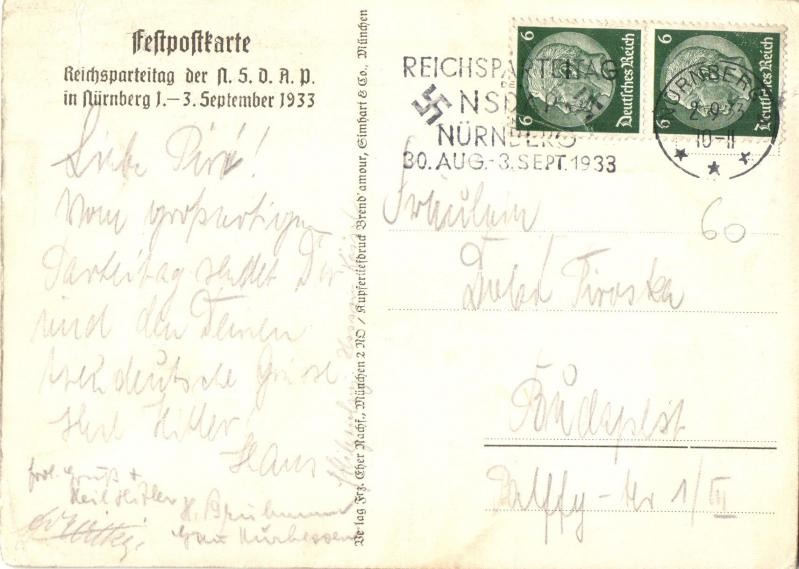 Festpostkarte
Reichsparteitag der N.S.D.A.P.
in Nürnberg 1.–3. September 1933
Liebe Piri!
Vom großartigen
Parteitag sendet Dir
und den Deinen
treudeutsche Grüsse
Heil Hitler
Hans
frdl. Gruß +
Heil Hitler
Gau Kurhessen
Verlag Frz. Eher Nachf., München 2 NO / Kupfertiefdruck Brend'amour, Simhart & Co., München
6 6
Deutsches Reich
6 6
Deutsches Reich
REICHSPARTEITAG
DER
NSDAP
NÜRNBERG
30. AUG.-3. SEPT. 1933
NÜRNBERG
2.9.33
10-11
60
Fräulein
Piroska
Budapest
Palffy-tér 1/III